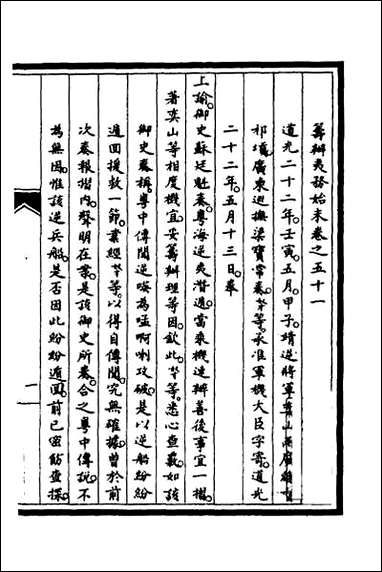 籌辦夷務始末卷之五十一
道光二十二年壬寅五月甲子靖逆將軍奕山兩廣總督
祁𡎴廣東巡撫梁寶常奏奴才等承准軍機大臣字寄道光
二十二年五月十三日奉
上諭御史蘇廷魁奏粵海逆夷潛遁當乘機速辦善後事宜一摺
著奕山等相度機宜妥籌辦理等因欽此奴才等悉心查覈如該
御史奏稱粵中傳聞逆夷為嗌啊喇攻破是以逆船紛紛
遁回援救一節業經奴才等以得自傳聞究無確據曾於前
次奏報摺內聲明在案是該御史所奏合之粵中傳說不
為無因惟該逆兵船是否因此紛紛遁回前已密飭查探
一